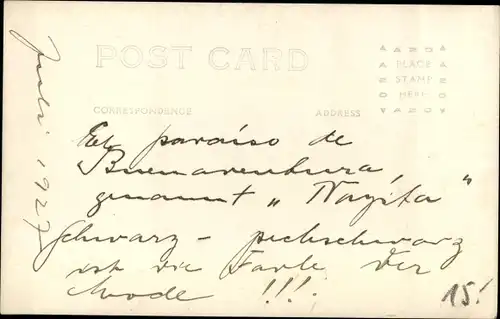 Juli 1927
POST CARD
AZOV
PLACE
STAMP
HERE
AZOV
CORRESPONDENCE
ADDRESS
El paraiso de
Buenaventura,
genannt „ Nayita "
Schwarz - pechschwarz
ist die Farbe der
Mode !!!
15!